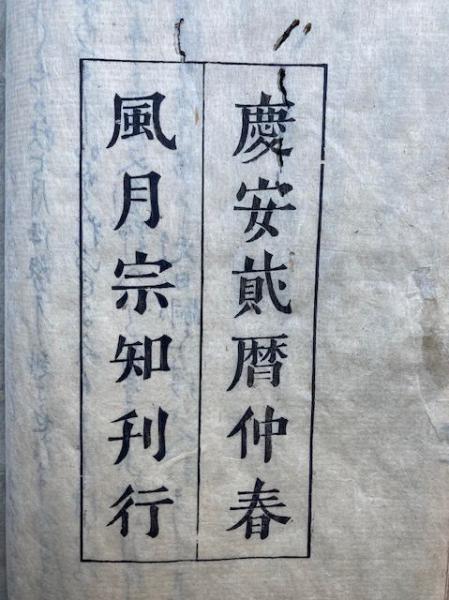 慶安貮暦仲春
風月宗知刊行